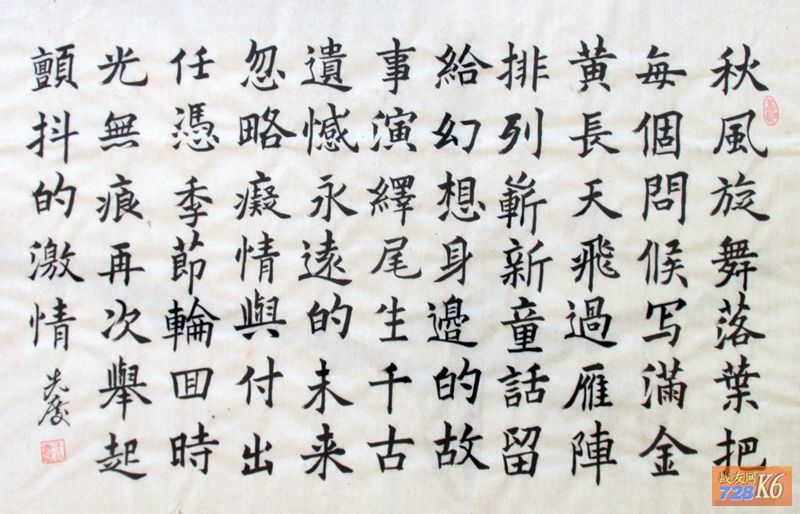 秋風旋舞落葉把
每個問候写滿金
黄長天飛過雁陣
排列嶄新童話留
給幻想身邊的故
事演繹尾生千古
遺憾永遠的未来
忽略癡情與付出
任憑季節輪回時
光無痕再次舉起
顫抖的激情
先慶
战友网
728K6